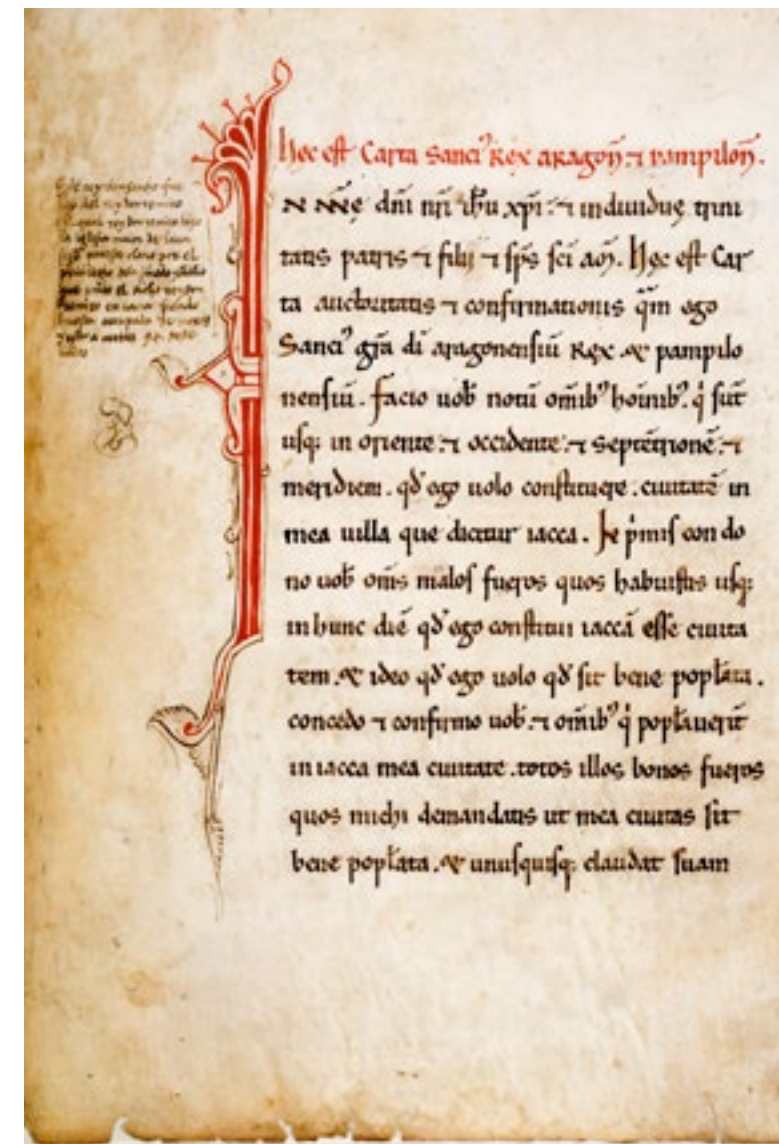 hec est Carta Sanci⁹ Rex aragoñ. ⁊ pampiloñ.
IN nn̄e dn̄i nr̄i ih̄u xp̄i. ⁊ indiuidue trini
tatis patris ⁊ filii ⁊ sp̄s sc̄i am̄. hec est Car
ta auctoritatis ⁊ confirmationis q̄m ego
Sanci⁹ gr̄a di aragonensiū Rex. & pampilo
nensiū. facio uob̄ notū om̄ib⁹ hoīnib⁹. q̇ sūt
usq; in oriente. ⁊ occidente. ⁊ septētrionē. ⁊
meridiem. qđ ego uolo constituere. ciuitatē in
mea uilla que dicitur iacca. In ṗmis con do
no uob̄ om̄s malos fueros quos habuistis usq;
in hunc diē qđ ego constitui iaccā esse ciuita
tem. & ideo qđ ego uolo qđ sit bene popl̄ata.
concedo ⁊ confirmo uob̄. ⁊ om̄ib⁹ q̇ popl̄auerit
in iacca mea ciuitate. totos illos bonos fueros
quos michi demandatis ut mea ciuitas sit
bene popl̄ata. & unusquisq; claudat suam